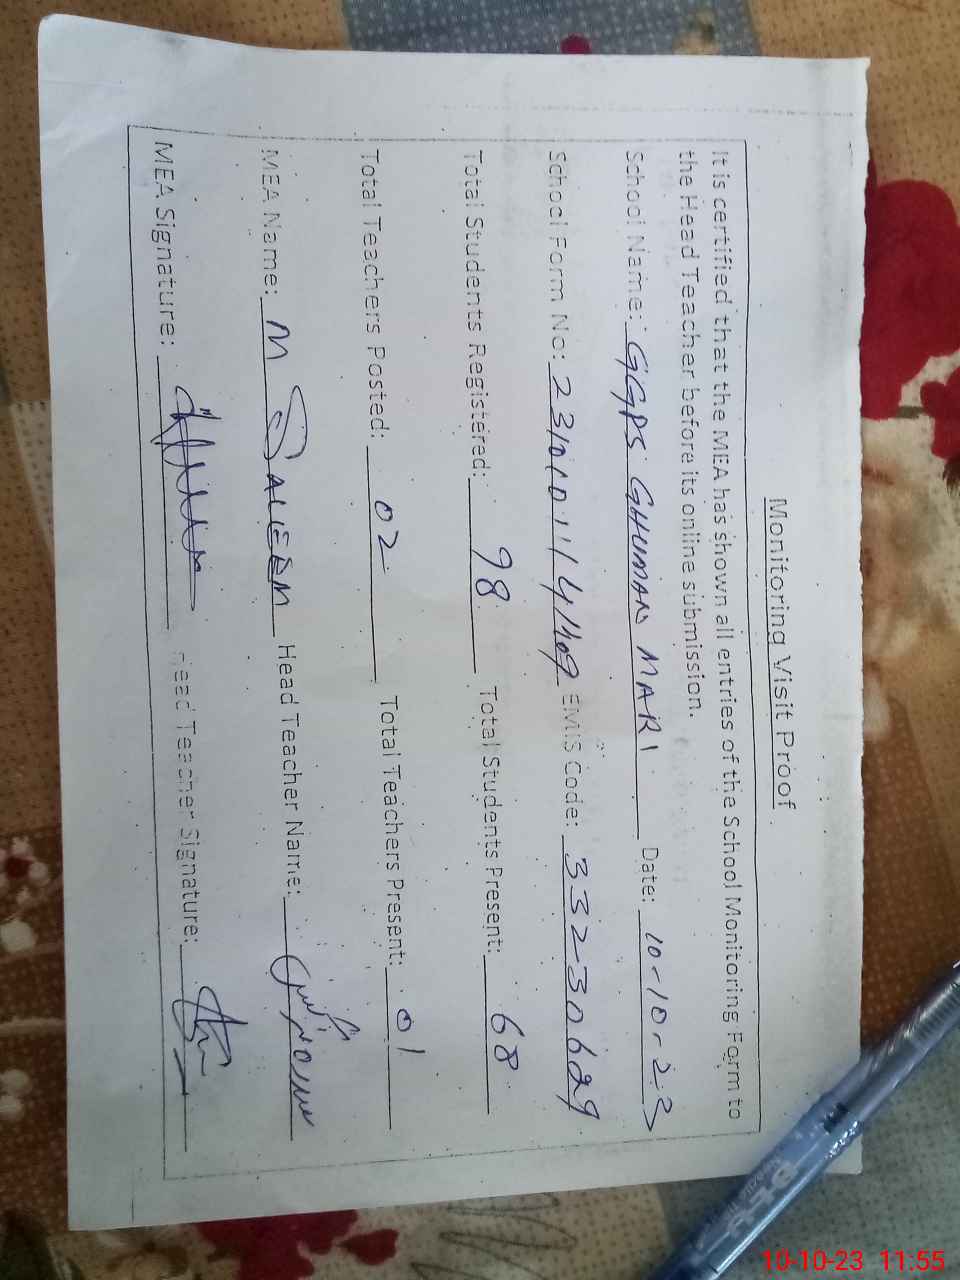 Monitoring Visit Proof
It is certified that the MEA has shown all entries of the School Monitoring Form to
the Head Teacher before its online submission.
School Name: GGPS GHUMAN MARI Date: 10-10-23
School Form No: EMIS Code: 332-30629
Total Students Registered: 98 Total Students Present: 68
Total Teachers Posted: 02 Total Teachers Present: 01
MEA Name: M SALEEM Head Teacher Name:
MEA Signature: Head Teacher Signature:
10-10-23 11:55